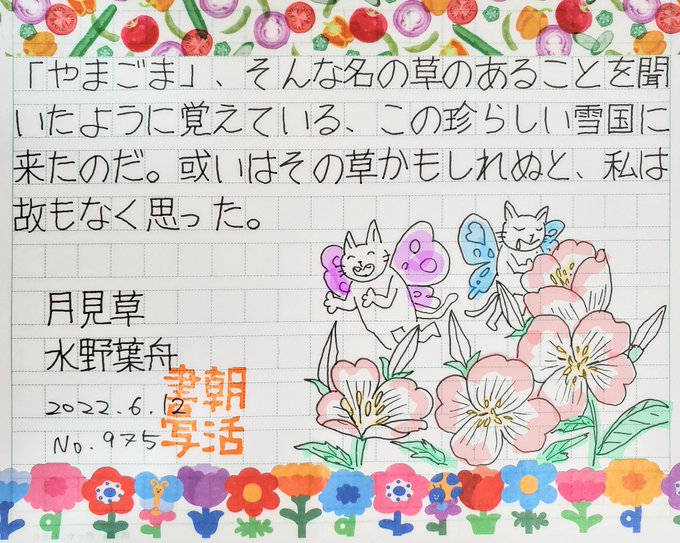 「やまごま」、そんな名の草のあることを聞
いたように覚えている、この珍らしい雪国に
来たのだ。或いはその草かもしれぬと、私は
故もなく思った。
月見草
水野葉舟
2022.6.12
No.975
朝活
書写